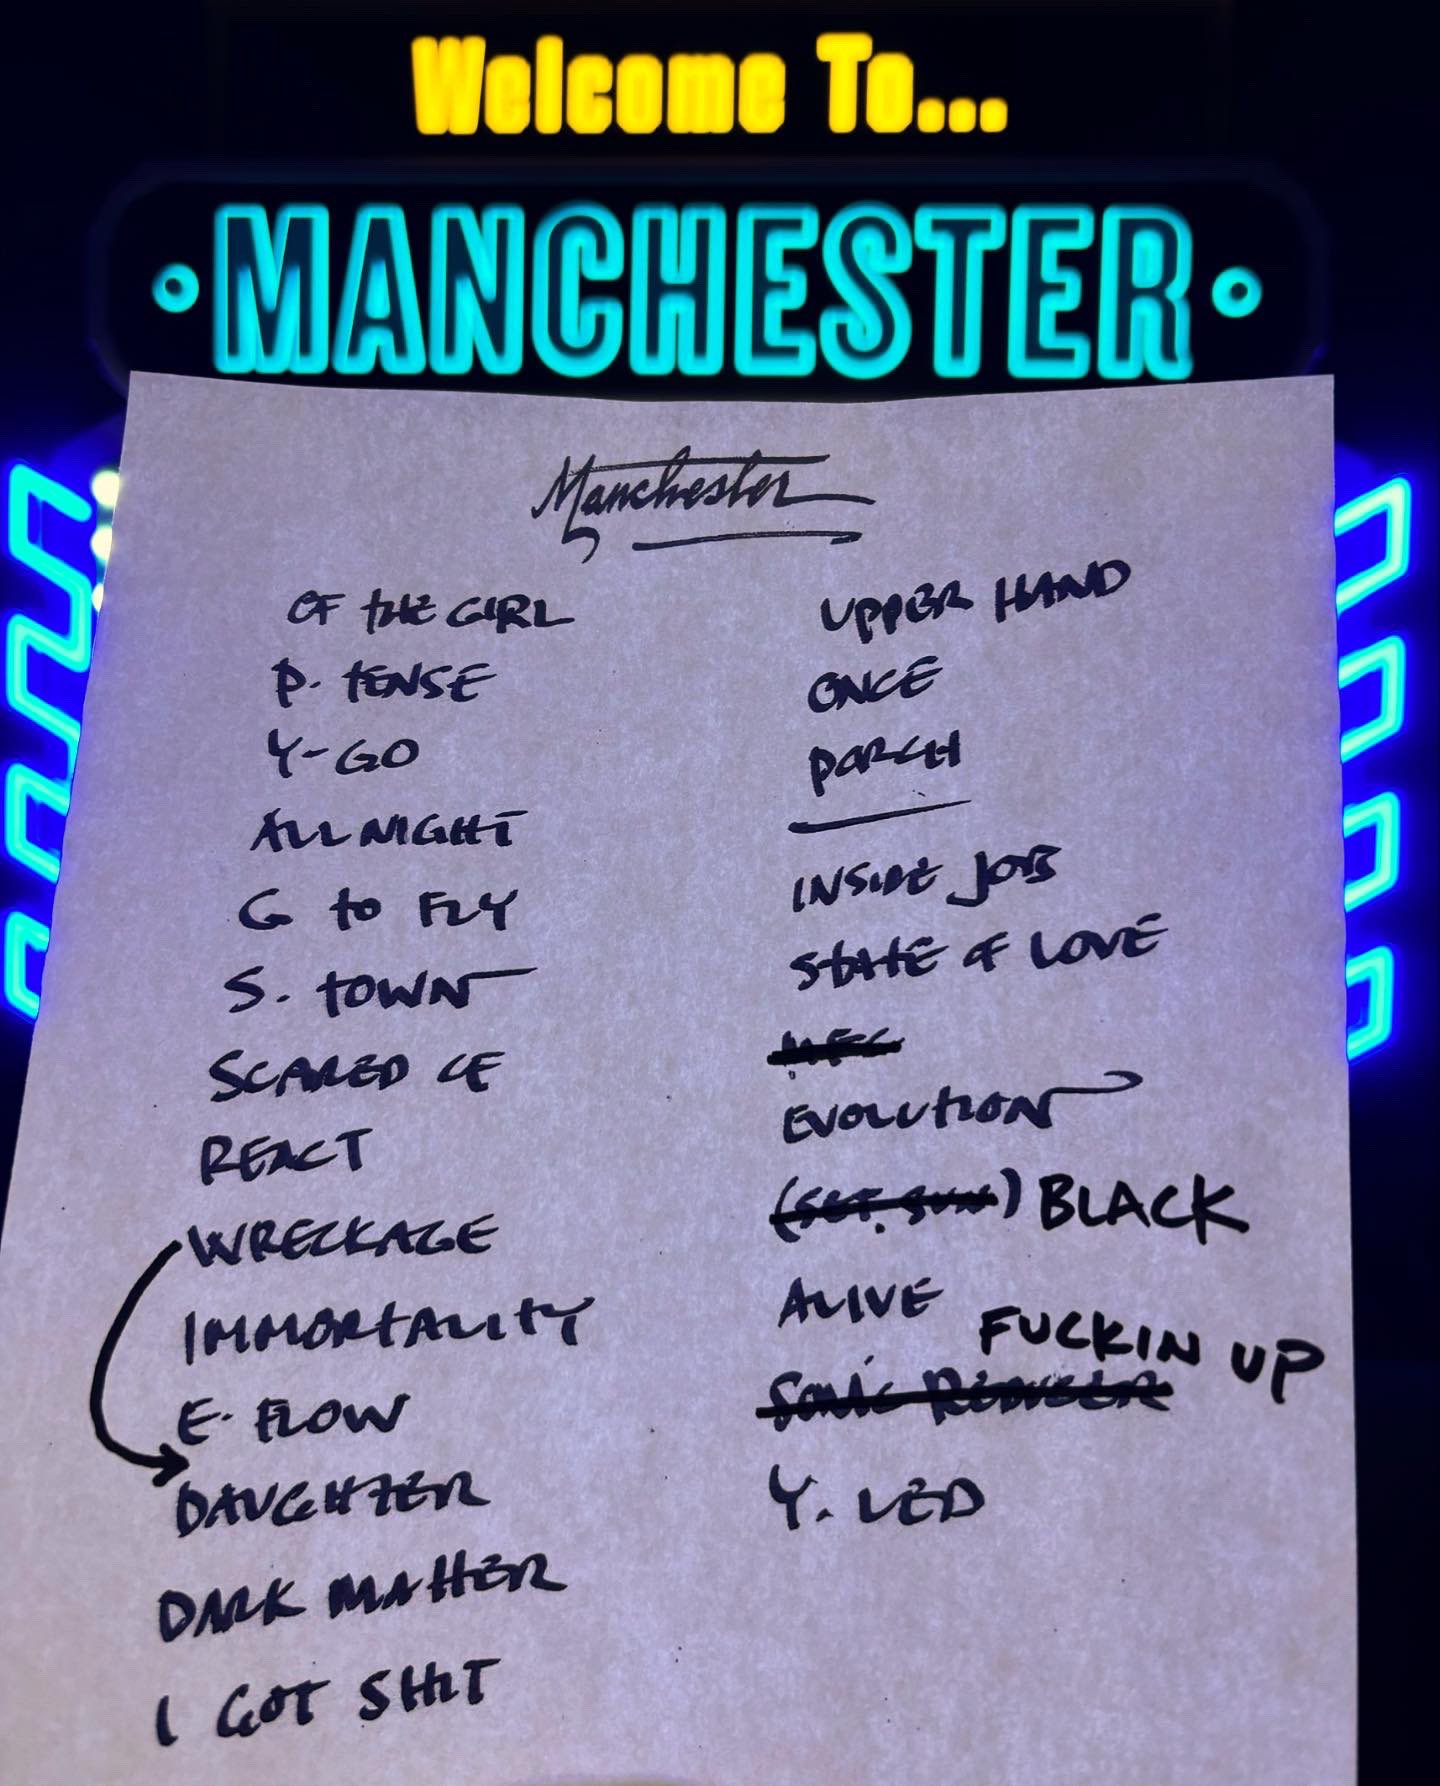 Welcome To...
•MANCHESTER•
Manchester
OF THE GIRL
P. TENSE
Y-GO
ALL NIGHT
G TO FLY
S. TOWN
SCARED OF
REACT
WRECKAGE
IMMORTALITY
E. FLOW
DAUGHTER
DARK MATTER
I GOT SHIT
UPPER HAND
ONCE
PORCH
INSIDE JOB
STATE OF LOVE
EVOLUTION
(SET. SUN) BLACK
ALIVE
FUCKIN UP
SONIC REDUCER
Y. LED